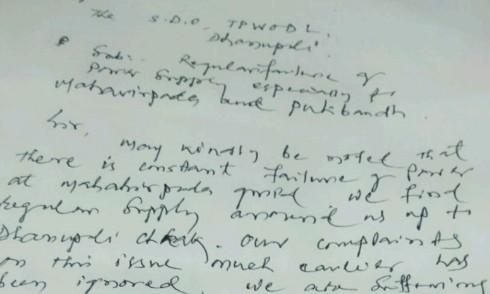 The S.D.O, TPWODL,
Dhanupali.
Sub:- Regular failure of
power supply especially to
Mahavirpada and putibandh
Sir,
May kindly be noted that
there is constant failure of power
at Mahavirpada we find
regular supply around us up to
Dhanupali chowk. Our complaints
on this issue much earlier has
been ignored. We are suffering